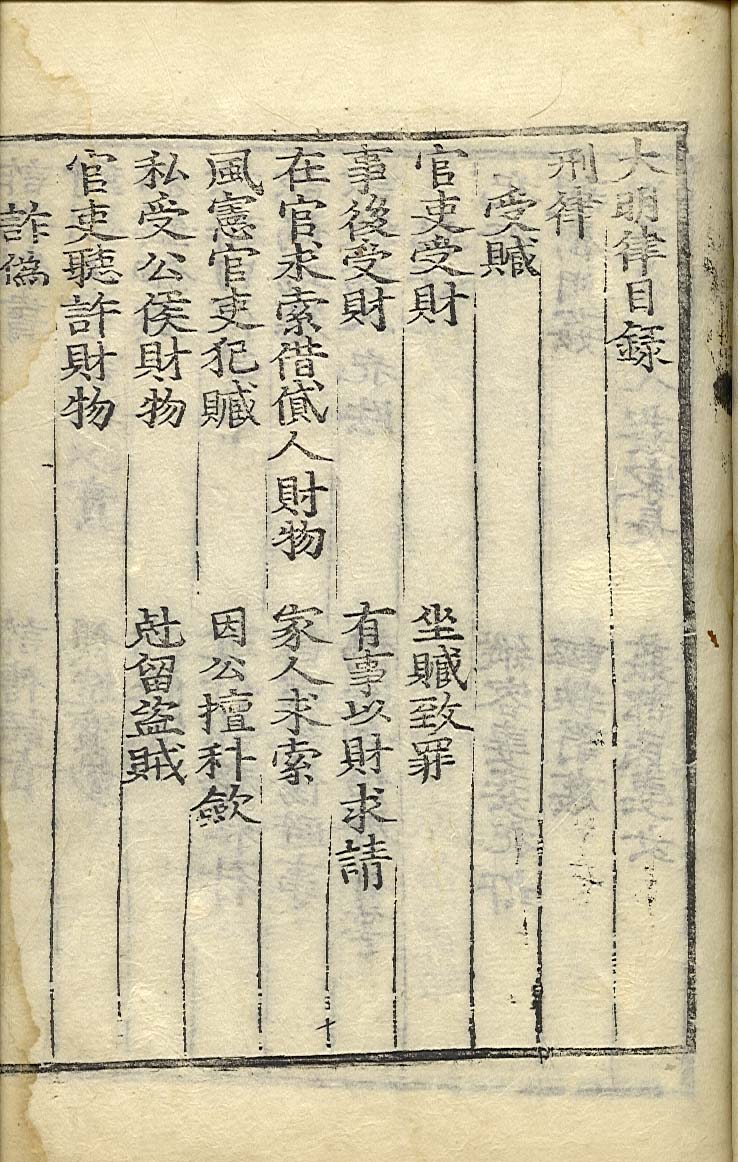 大明律目録
刑律
受贓
官吏受財 坐贓致罪
事後受財 有事以財求請
在官求索借貸人財物 家人求索
風憲官吏犯贓 因公擅科歛
私受公侯財物 尅留盗贓
官吏聽許財物
詐偽